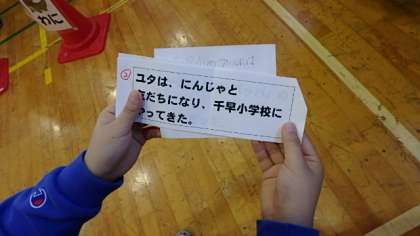 わに
②
ユタは、にんじゃと
友だちになり、千早小学校に
やってきた。